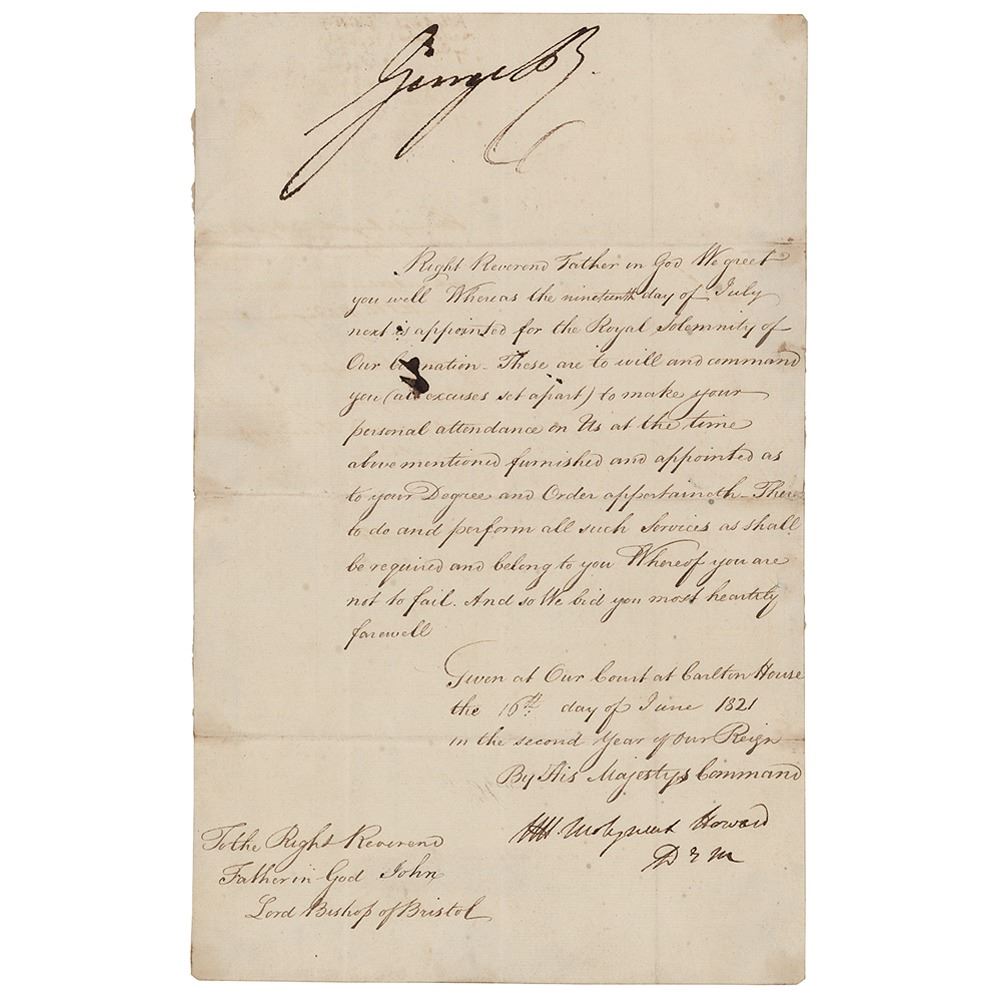 George R
Right Reverend Father in God We greet
you well Whereas the nineteenth day of July
next is appointed for the Royal Solemnity of
Our Coronation. These are to will and command
you (all excuses set apart) to make your
personal attendance on Us at the time
above mentioned furnished and appointed as
to your Degree and Order appertaineth. There
to do and perform all such Services as shall
be required and belong to you Whereof you are
not to fail. And so We bid you most heartily
farewell
Given at Our Court at Carlton House
the 16th day of June 1821
in the second Year of Our Reign
By His Majestys Command
Molyneux Howard
D E M
To the Right Reverend
Father in God John
Lord Bishop of Bristol